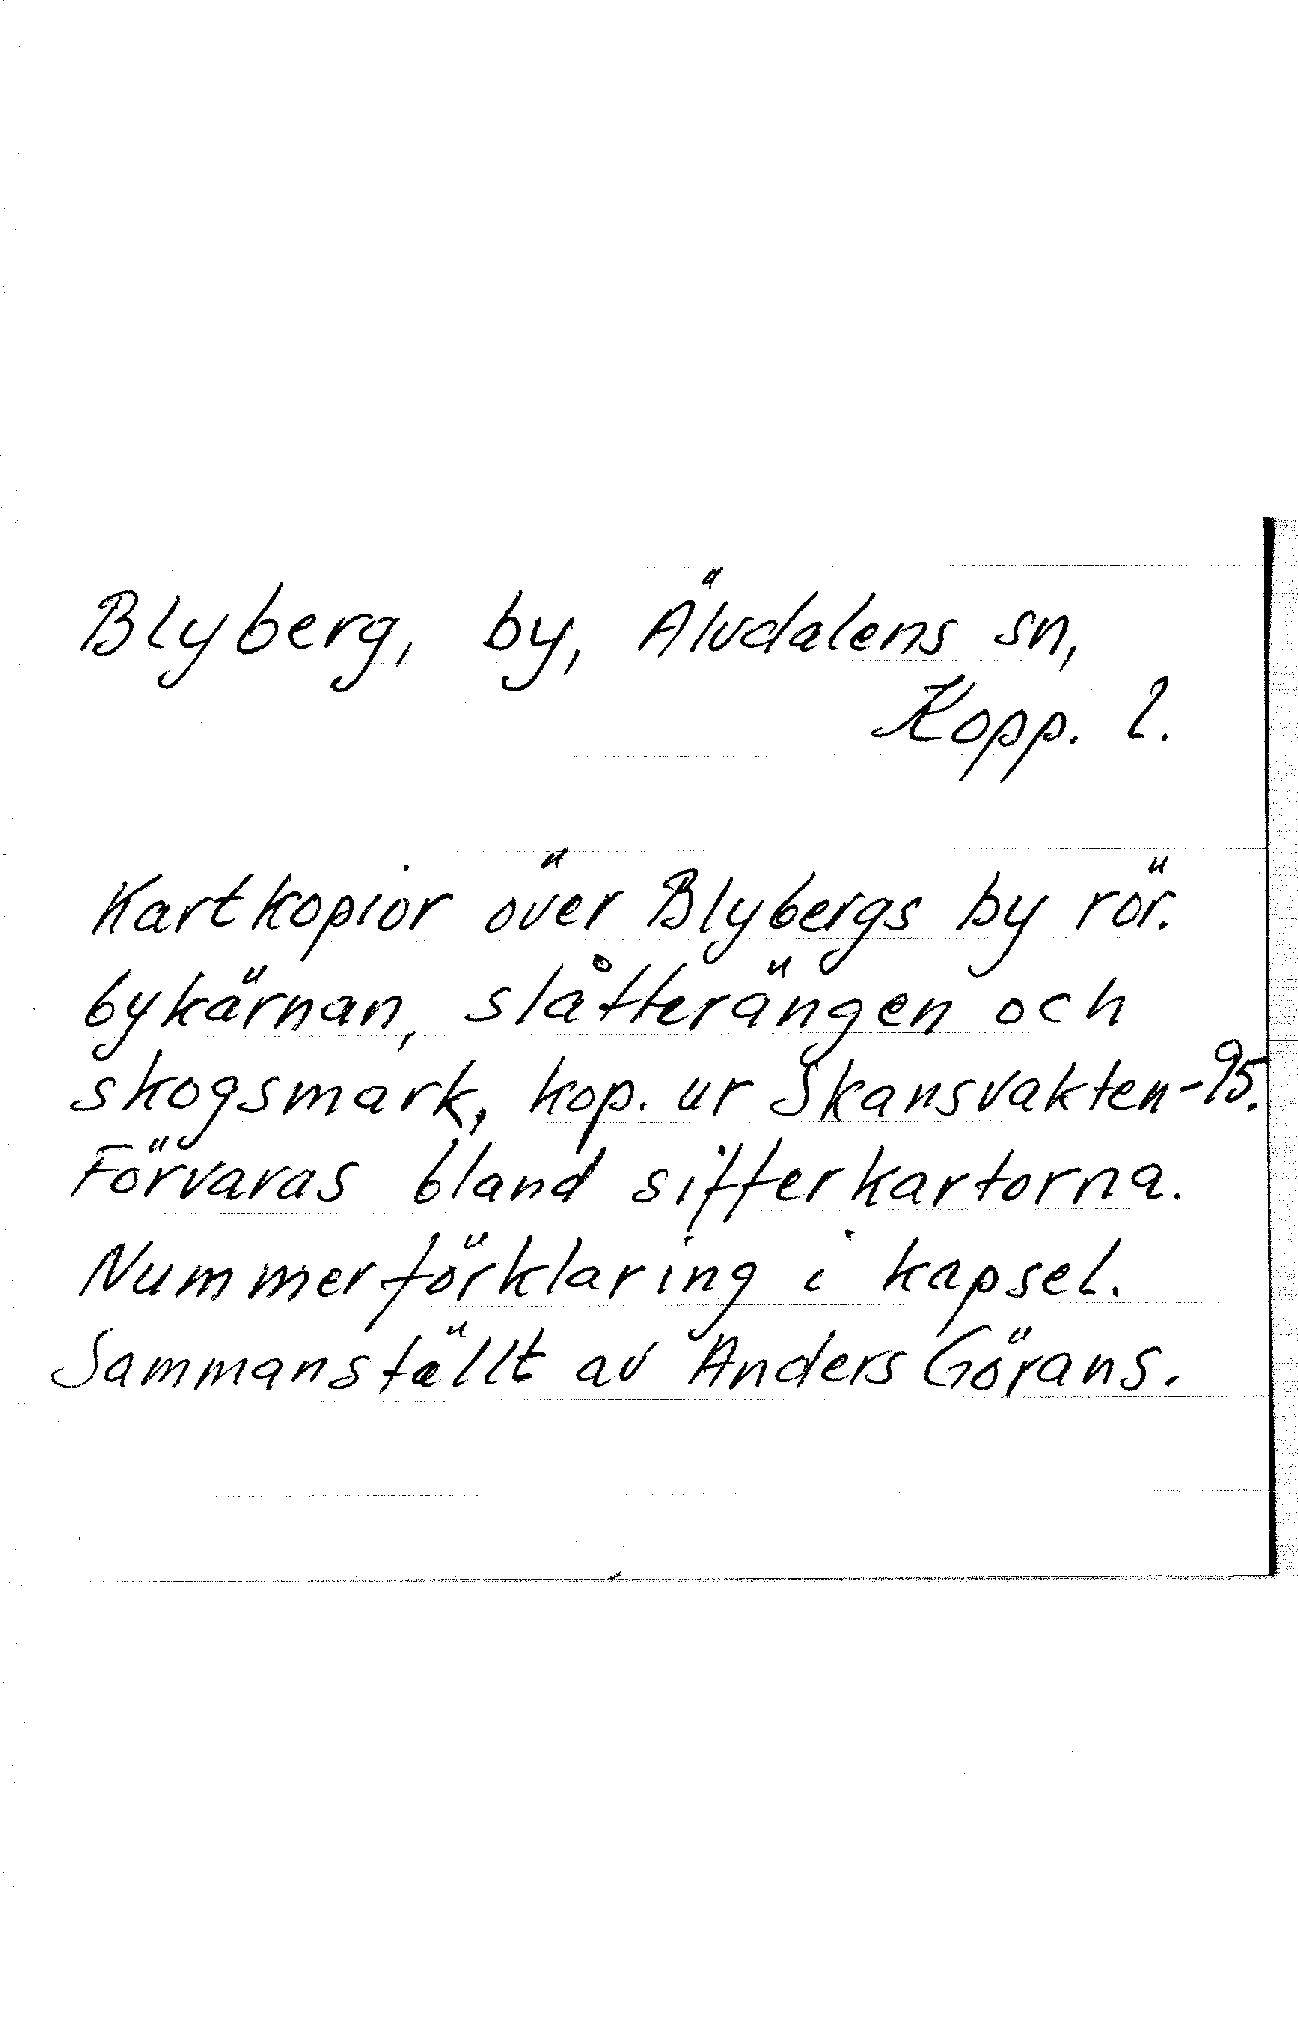 Blyberg, by, Älvdalens sn,
Kopp. l.
Kartkopior över Blybergs by rör.
bykärnan, slåtterängen och
skogsmark, kop. ur Skansvakten -95.
Förvaras bland sifferkartorna.
Nummerförklaring i kapsel.
Sammanställt av Anders Görans.